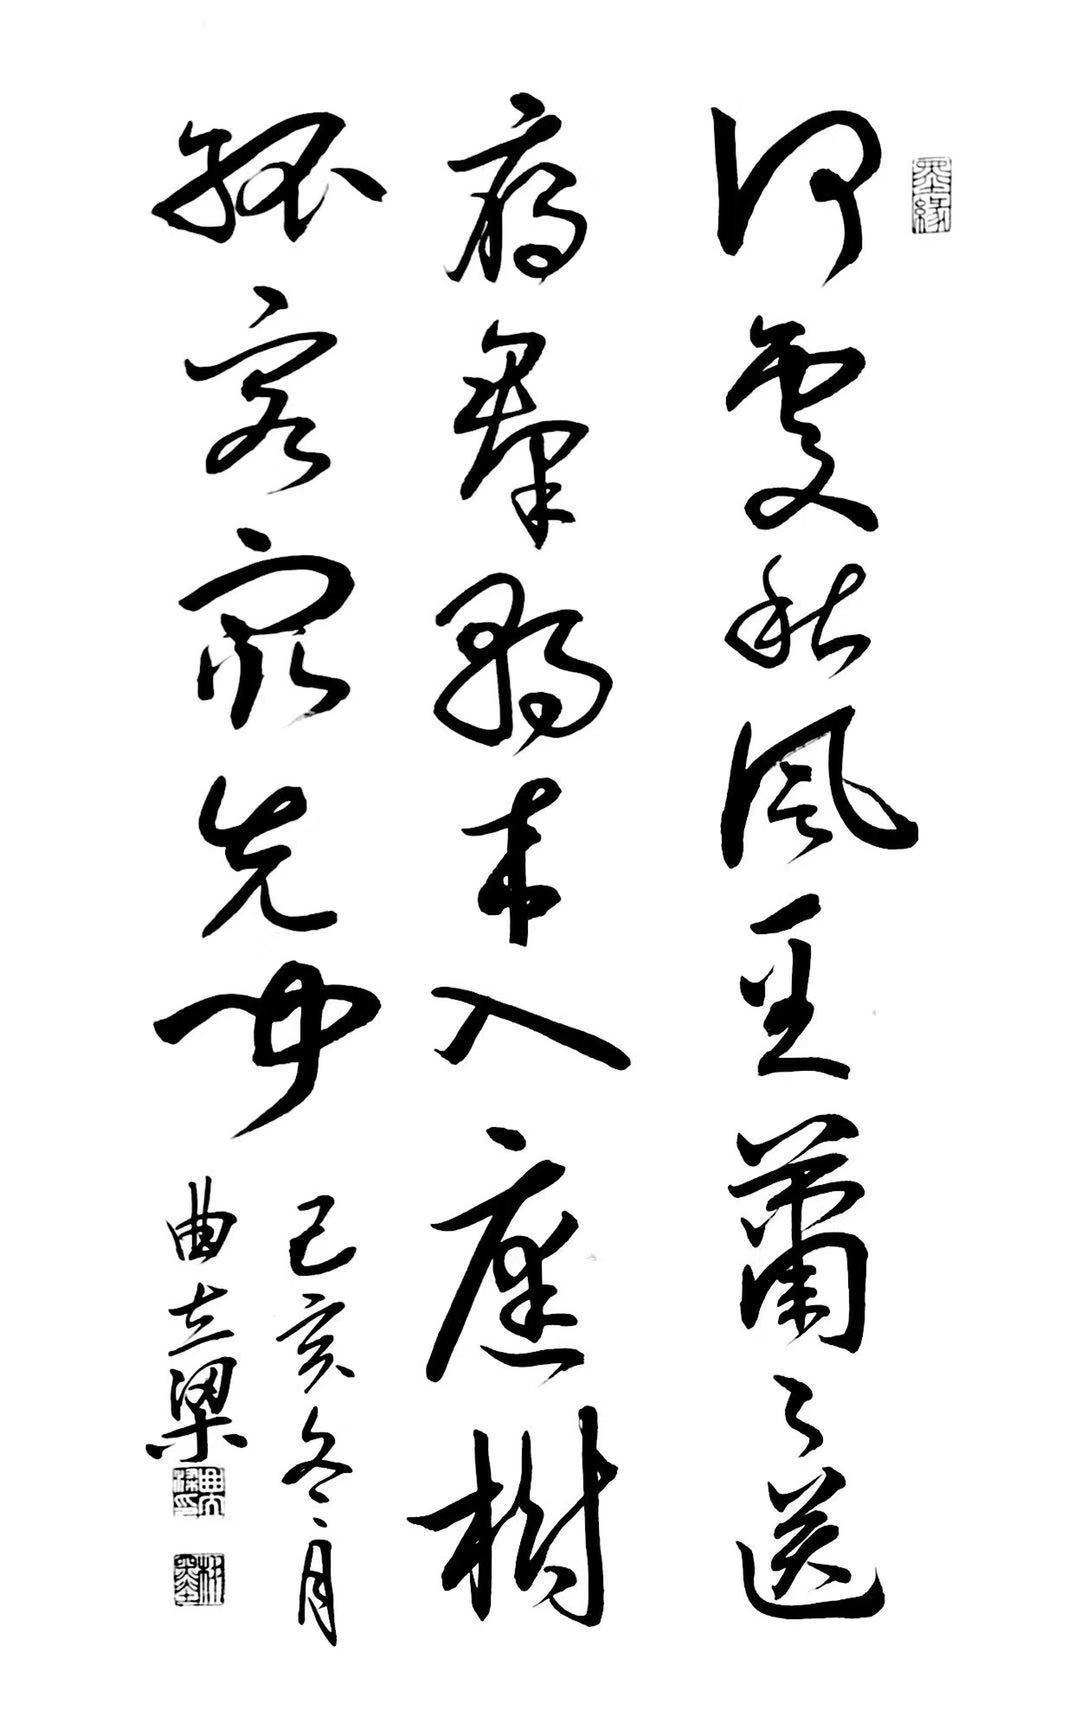 墨緣
何處秋風至蕭々送
雁羣朝来入庭樹
孤客最先聞
己亥冬月
曲 梁